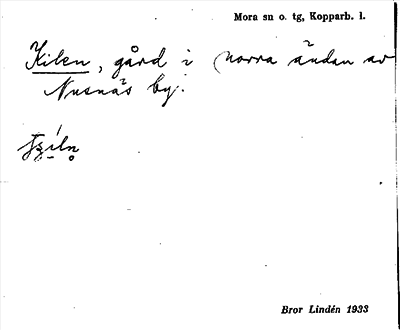 Mora sn o. tg, Kopparb. l.
Kilen, gård i norra ändan av
Nusnäs by.
Bror Lindén 1933